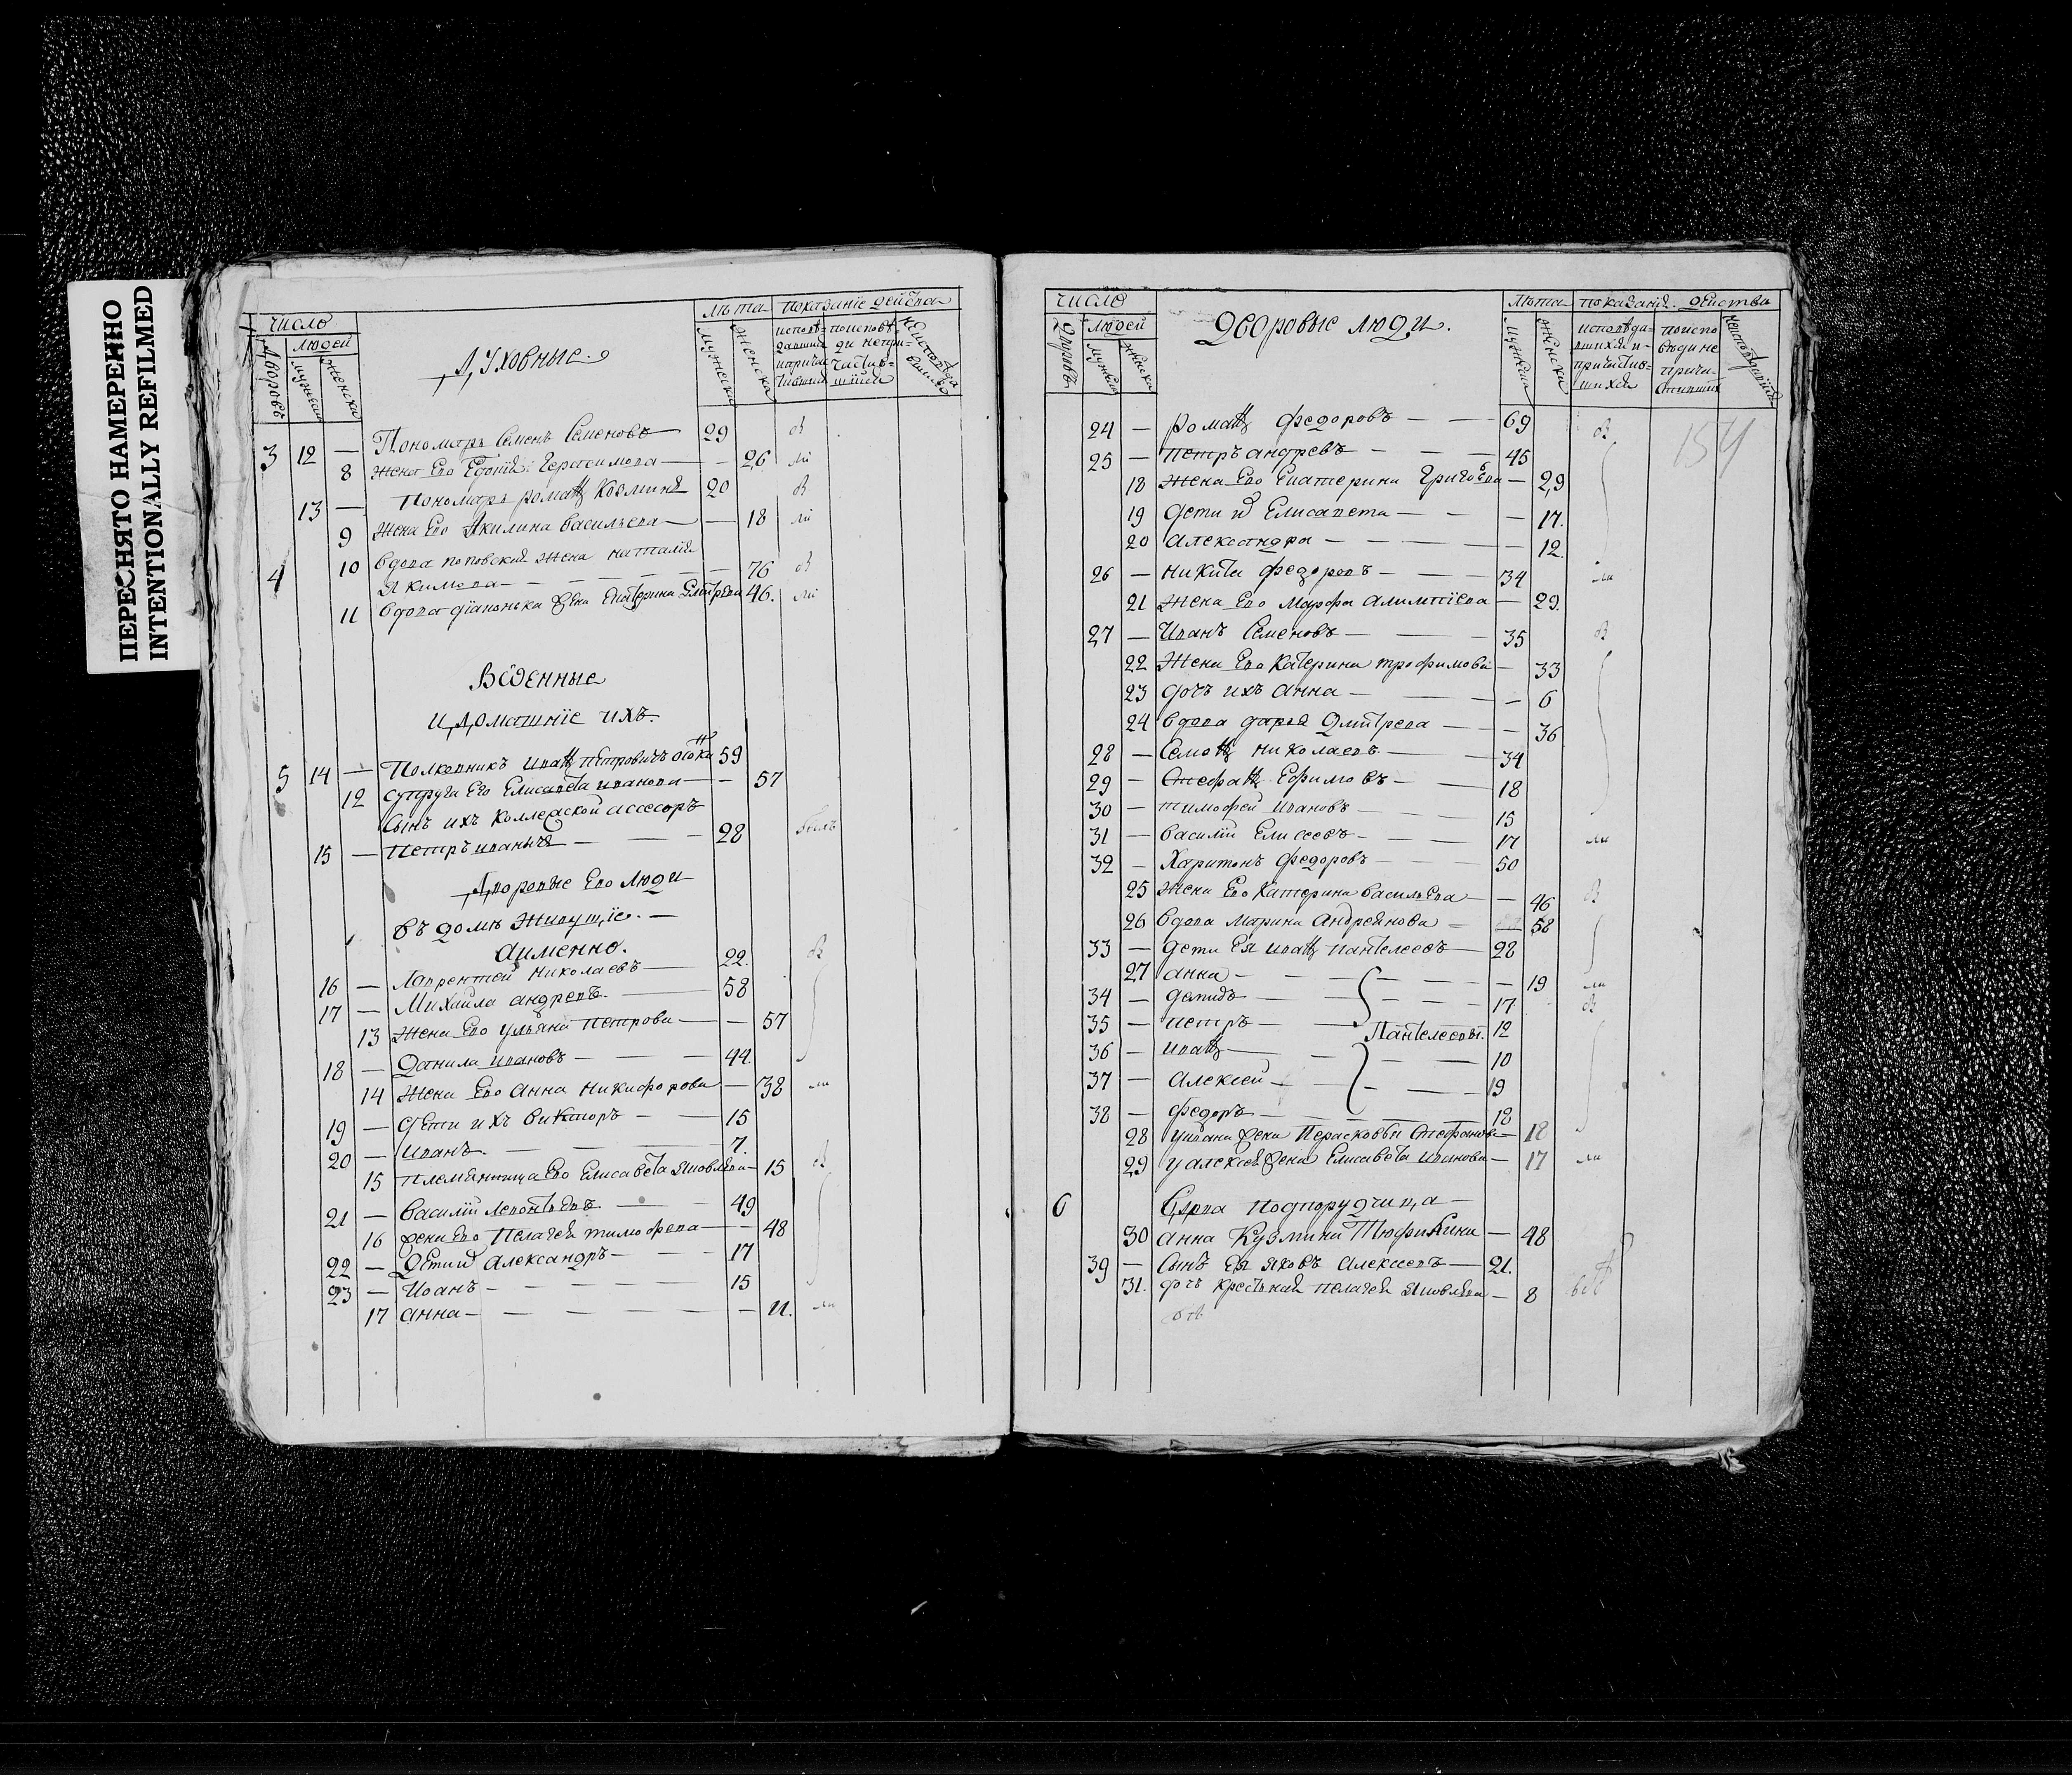 ПЕРЕСНЯТО НАМЕРЕННО
INTENTIONALLY REFILMED
число
людей
Дворовъ
мужеска
женска
Духовные.
лѣта
мужеска
женска
показание действа
3 12 — Пономарь Семенъ Семеновъ — 29
8 жена Его Герасимова — — 26
13 — Пономарь роман Козминъ 20
9 Жена Его Акилина васильева — — 18
4 10 вдова поповская жена наталия
Якимова — — — 76
11 вдова диаконска жена Екатерина Дмитрева 46.
Воденные
и Домашние ихъ.
5 14 — Полковникъ иван петровичъ 59
12 супруга Его Елисавета иванова — — 57
Сынъ ихъ коллеской ассесоръ
15 — Петръ иванычь — — 28 былъ
Дворовые Его люди
въ домѣ живущие. —
аименно.
16 — Лаврентей николаевъ — 22.
17 — Михаила андревъ. — 58
13 жена Его ульяна петрова — — 57
18 — Данила ивановъ — — 44.
14 жена Его анна никифорова — 38 ли
19 — дети ихъ викторъ — — 15
20 — иванъ. — — 7.
15 племянница Его Елисавета яковлева — 15
21 — василий леонтьевъ. — — 49
16 жена Его Пелагея тимофева — — 48
22 — Дети Александръ — — 17
23 — Иоанъ — — — 15
17 анна — — — — 11. ли
число
Дворовъ
людей
мужеска
женска
Дворовые люди.
лѣта
мужеска
женска
показания. действа
исповѣда-
вшихся и
причастив-
шихся
поиспо
вѣди не
причи-
стившия
154
24 — роман федоровъ — — 69
25 — петръ андревъ — — — 45
18 жена Его Екатерина Григорева — 29
19 дети Елисавета — — — 17.
20 александра — — — — 12.
26 — никита федоровъ — — 34 ли
21 Жена Его Марфа алимпиева — 29.
27 — Иванъ Семеновъ — — 35
22 Жена Его катерина трофимова — 33
23 дочь ихъ анна — — — 6
24 вдова дарья Дмитрева — — 36
28 — Семен николаевъ — — 34
29 — Стефан Ефимовъ — — 18
30 — тимофей ивановъ — — 15
31 — василий Елисеевъ — — 17 ли
32 — Харитонъ федоровъ — — 50
25 жена Его катерина васильева — — 46
26 вдова марина андреянова — 58
33 — дети Ея иван пантелеевъ — 28
27 анна — — — — 19 ли
34 — демидъ — — — 17
35 — петръ — — Пантелеевы. 12
36 — иван — — — 10
37 — алексей — — — 19
38 — федоръ — — — 12
28 уивана жена Парасковья Стефанова — 18
29 уалексея жена Елисавета иванова — 17 ли
6 Вдова подпоручица —
30 анна Кузмина Тюфякина — 48
39 — Сынъ Ея яковъ алексеевъ — 21.
31. дочь крестьная пелагея яковлева — 8